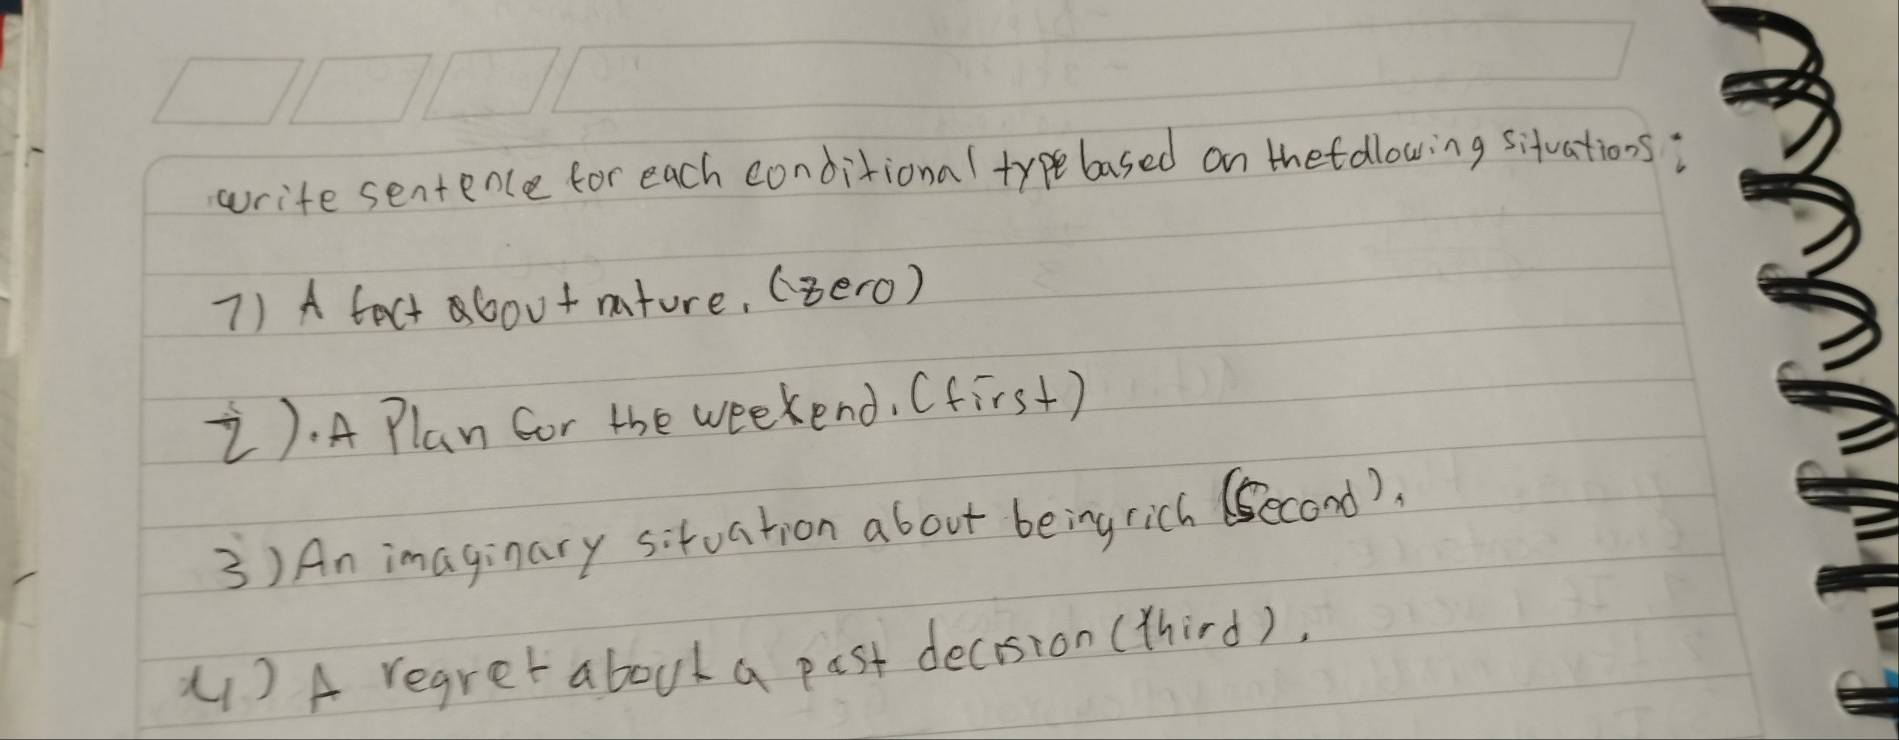 write sentence for each conditional type based on the following situations:
1) A fact about nature. (zero)
2). A Plan for the weekend. (first)
3) An imaginary situation about being rich (Second).
4) A regret about a past decision (third).